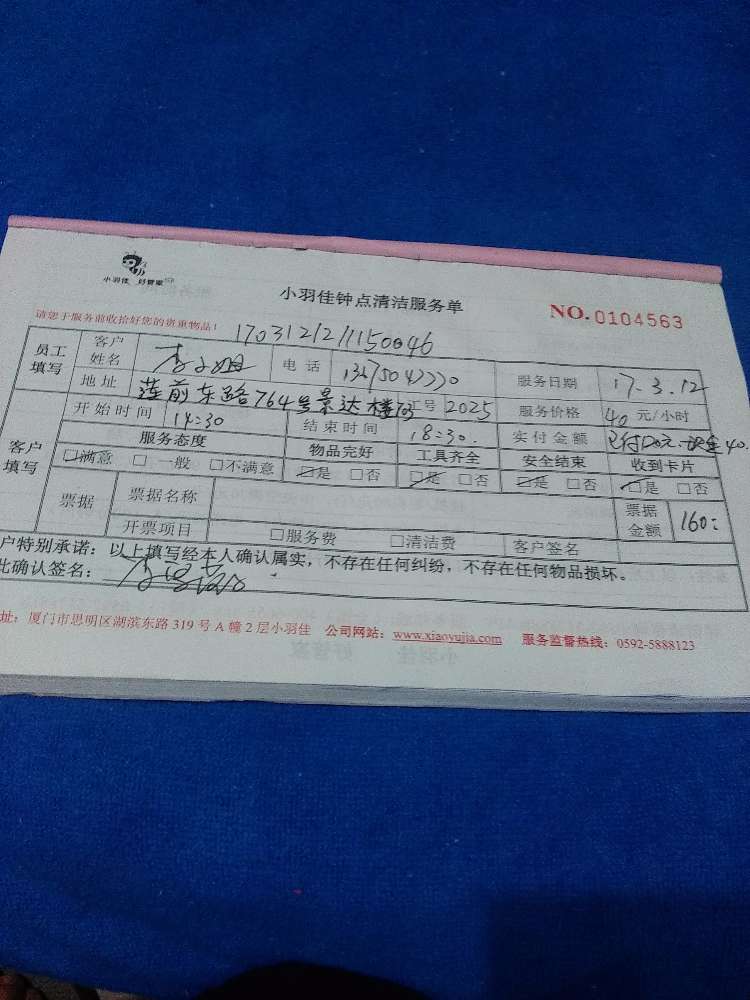 小羽佳 好管家
小羽佳钟点清洁服务单
NO.0104563
请您于服务前收拾好您的贵重物品!
员工填写 客户姓名 李小姐 电话 服务日期 17.3.12
地址 莲前东路764号景达楼703 汇号 2025 服务价格 40 元/小时
客户填写 开始时间 14:30 结束时间 18:30. 实付金额 已付120元.现金40.
服务态度 物品完好 工具齐全 安全结束 收到卡片
□满意 □一般 □不满意 □是 □否 □是 □否 □是 □否 □是 □否
票据 票据名称 票据金额 160:
开票项目 □服务费 □清洁费 客户签名
户特别承诺:以上填写经本人确认属实,不存在任何纠纷,不存在任何物品损坏。
此确认签名:
址:厦门市思明区湖滨东路319号A幢2层小羽佳 公司网站:www.xiaoyujia.com 服务监督热线:0592-5888123